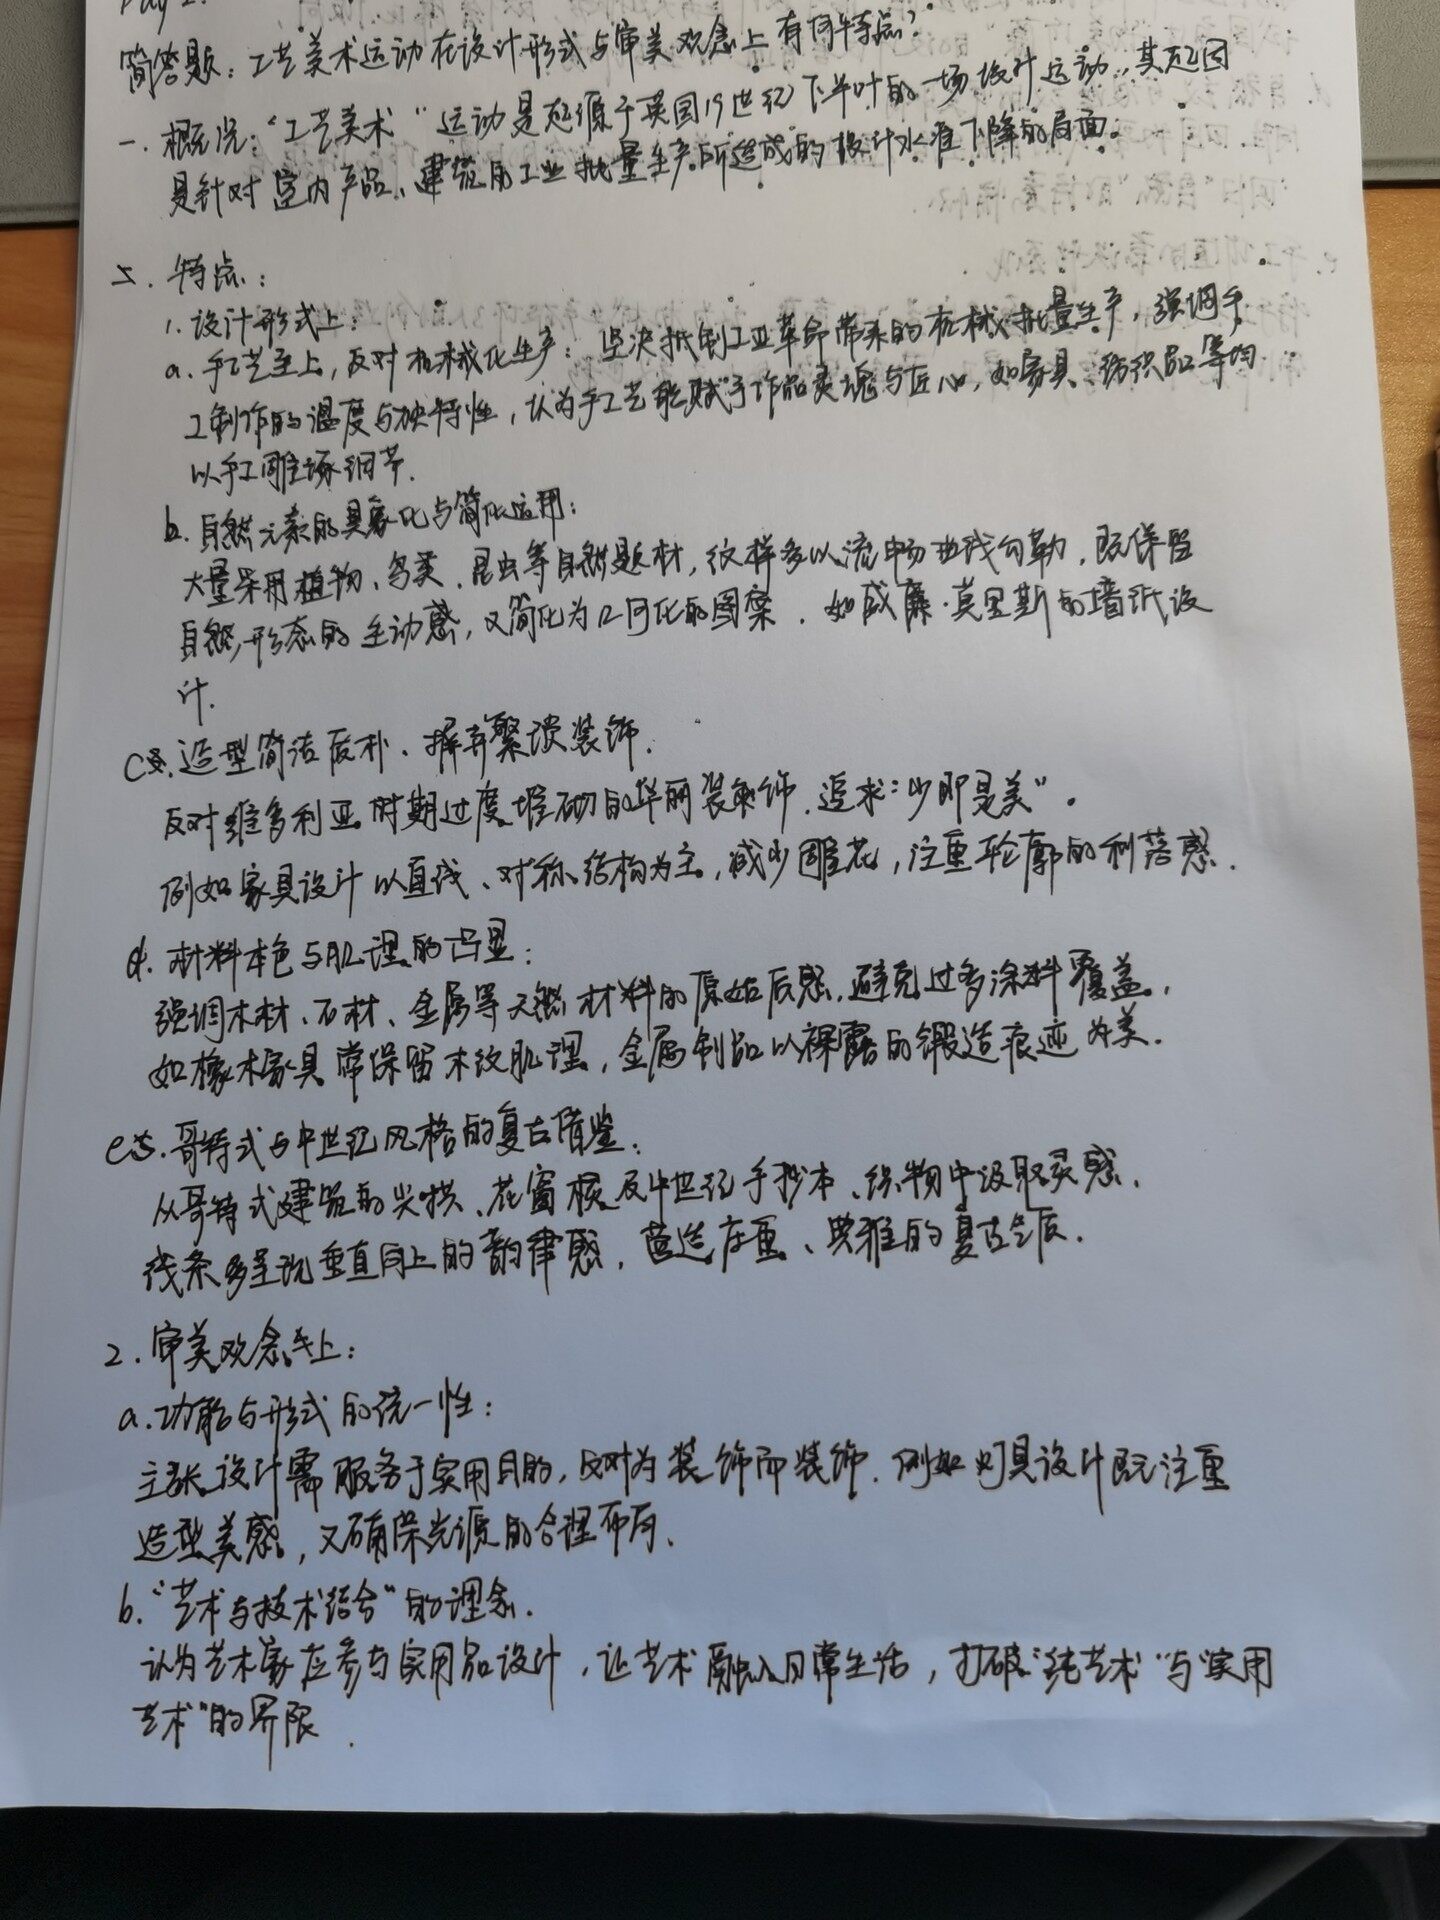 Day 2.
简答题：工艺美术运动在设计形式与审美观念上有何特点？
一.概况：“工艺美术”运动是起源于英国19世纪下半叶的一场设计运动，其起因
是针对室内产品、建筑因工业批量生产所造成的设计水准下降的局面。
二.特点：
1.设计形式上：
a.手工艺至上，反对机械化生产：坚决抵制工业革命带来的机械批量生产，强调手
工制作的温度与独特性，认为手工艺能赋予作品灵魂与匠心，如家具、纺织品等均
以手工雕琢细节.
b.自然元素的具象化与简化运用：
大量采用植物、鸟类、昆虫等自然题材，纹样多以流畅曲线勾勒，既保留
自然形态的生动感，又简化为几何化的图案.如威廉·莫里斯的墙纸设
计.
c.造型简洁质朴、摒弃繁琐装饰.
反对维多利亚时期过度堆砌的华丽装饰，追求“少即是美”。
例如家具设计以直线、对称结构为主，减少雕花，注重轮廓的利落感.
d.材料本色与肌理的凸显：
强调木材、石材、金属等天然材料的原始质感，避免过多涂料覆盖，
如橡木家具常保留木纹肌理，金属制品以裸露的锻造痕迹为美.
e.哥特式与中世纪风格的复古借鉴：
从哥特式建筑的尖拱、花窗棂及中世纪手抄本、织物中汲取灵感，
线条多呈现垂直向上的韵律感，营造庄重、典雅的复古气质.
2.审美观念上：
a.功能与形式的统一性：
主张设计需服务于实用目的，反对为装饰而装饰.例如灯具设计既注重
造型美感，又确保光源的合理布局.
b.“艺术与技术结合”的理念.
认为艺术家应参与实用品设计，让艺术融入日常生活，打破“纯艺术”与“实用
艺术”的界限.